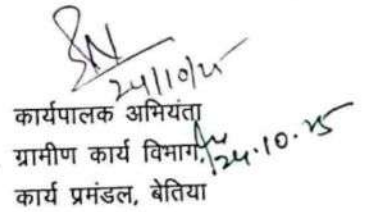 24/10/25
कार्यपालक अभियंता
ग्रामीण कार्य विभाग,
24.10.25
कार्य प्रमंडल, बेतिया